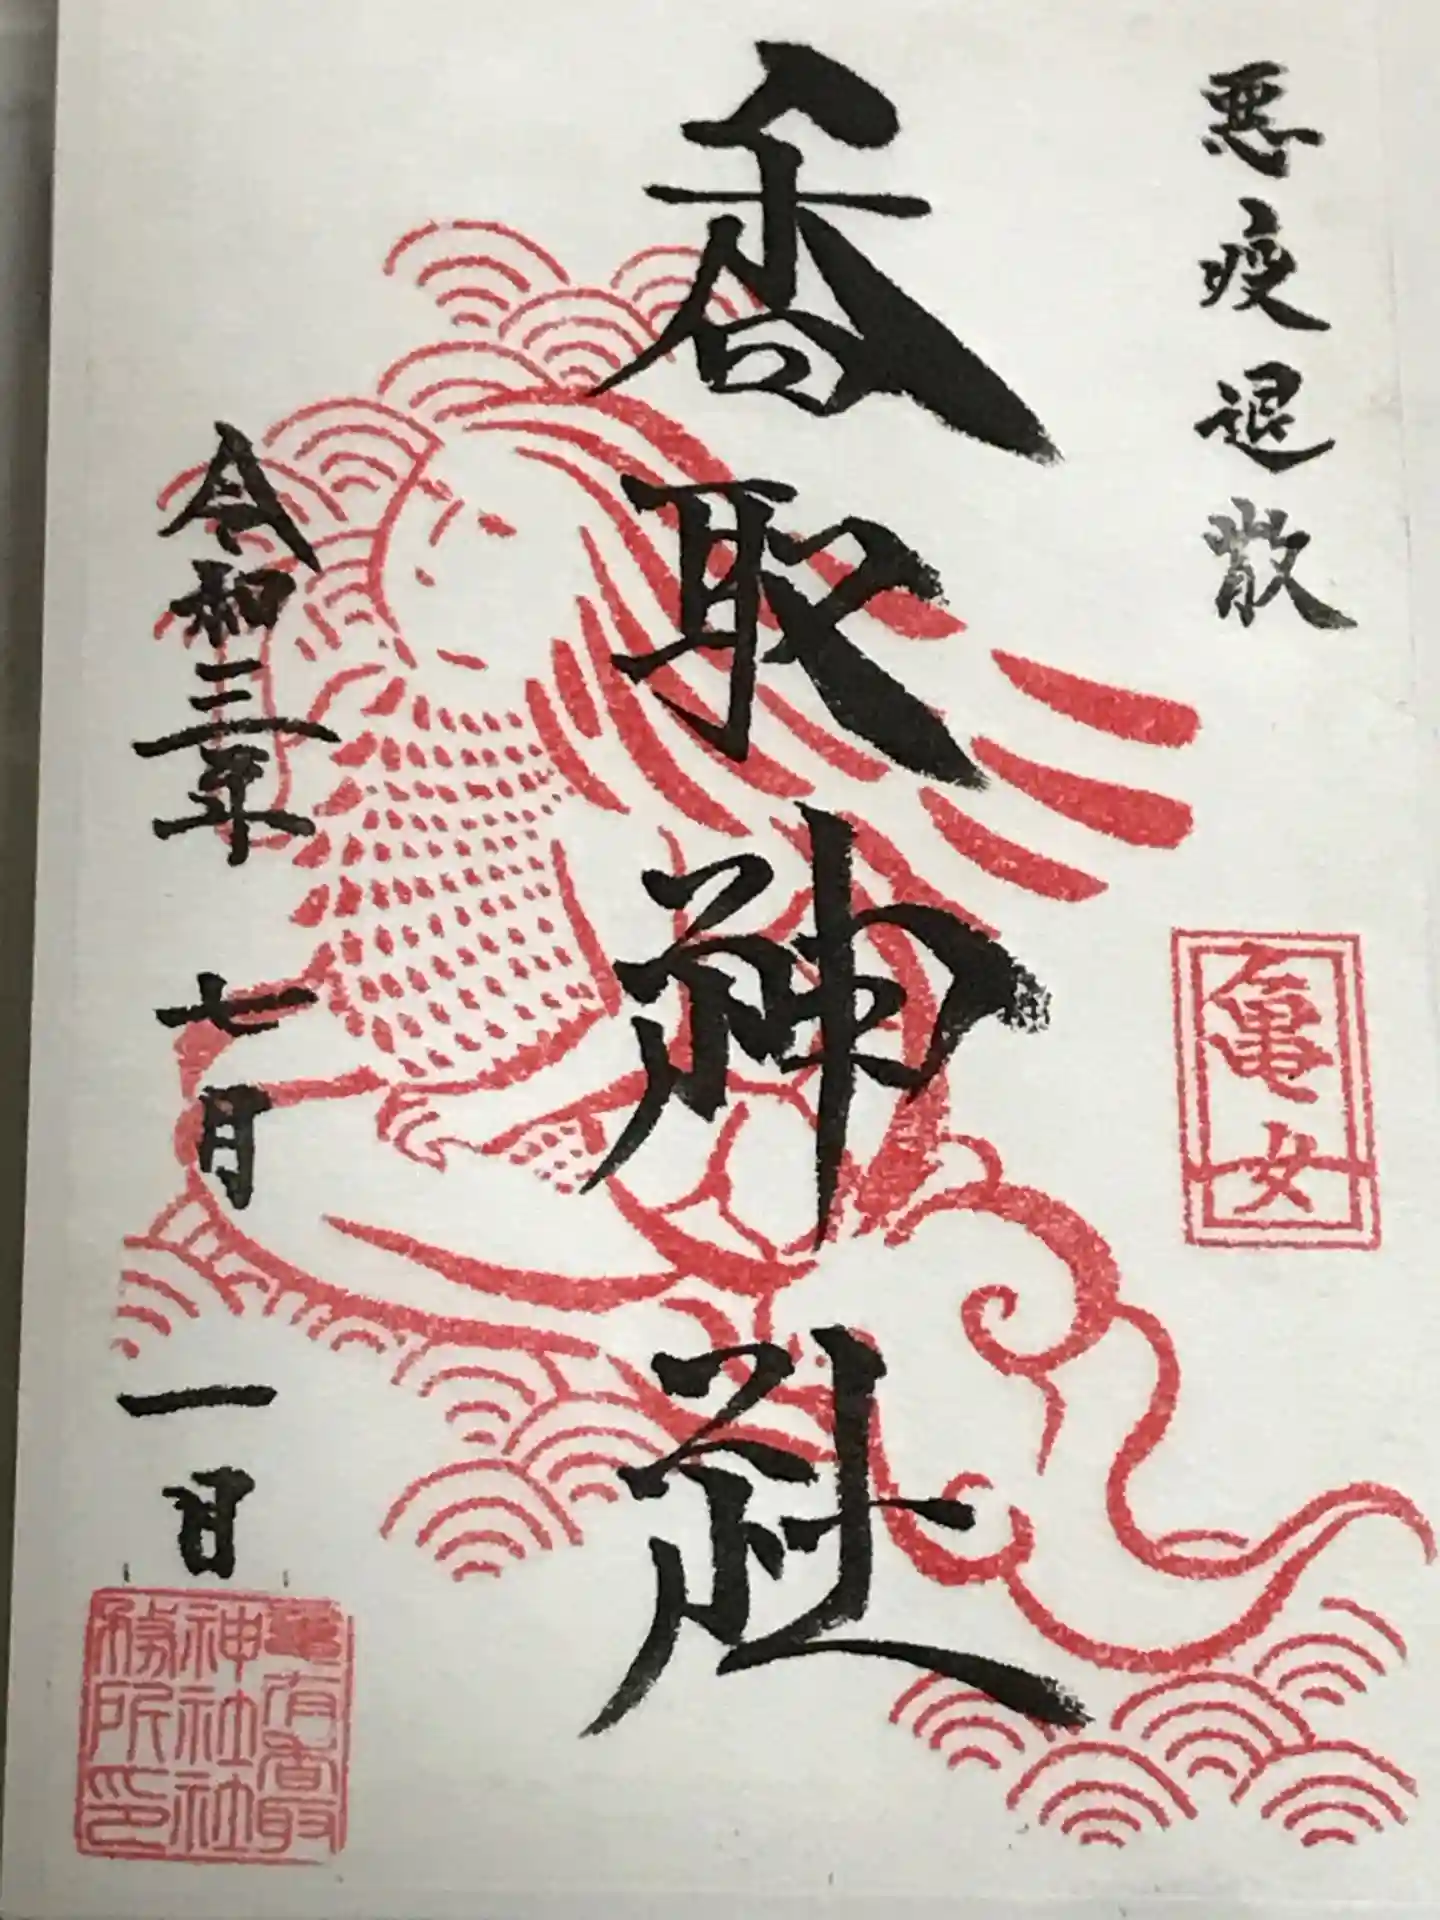 悪疫退散
亀女
香取神社
令和三年 七月 一日
亀有香取
神社社
務所印